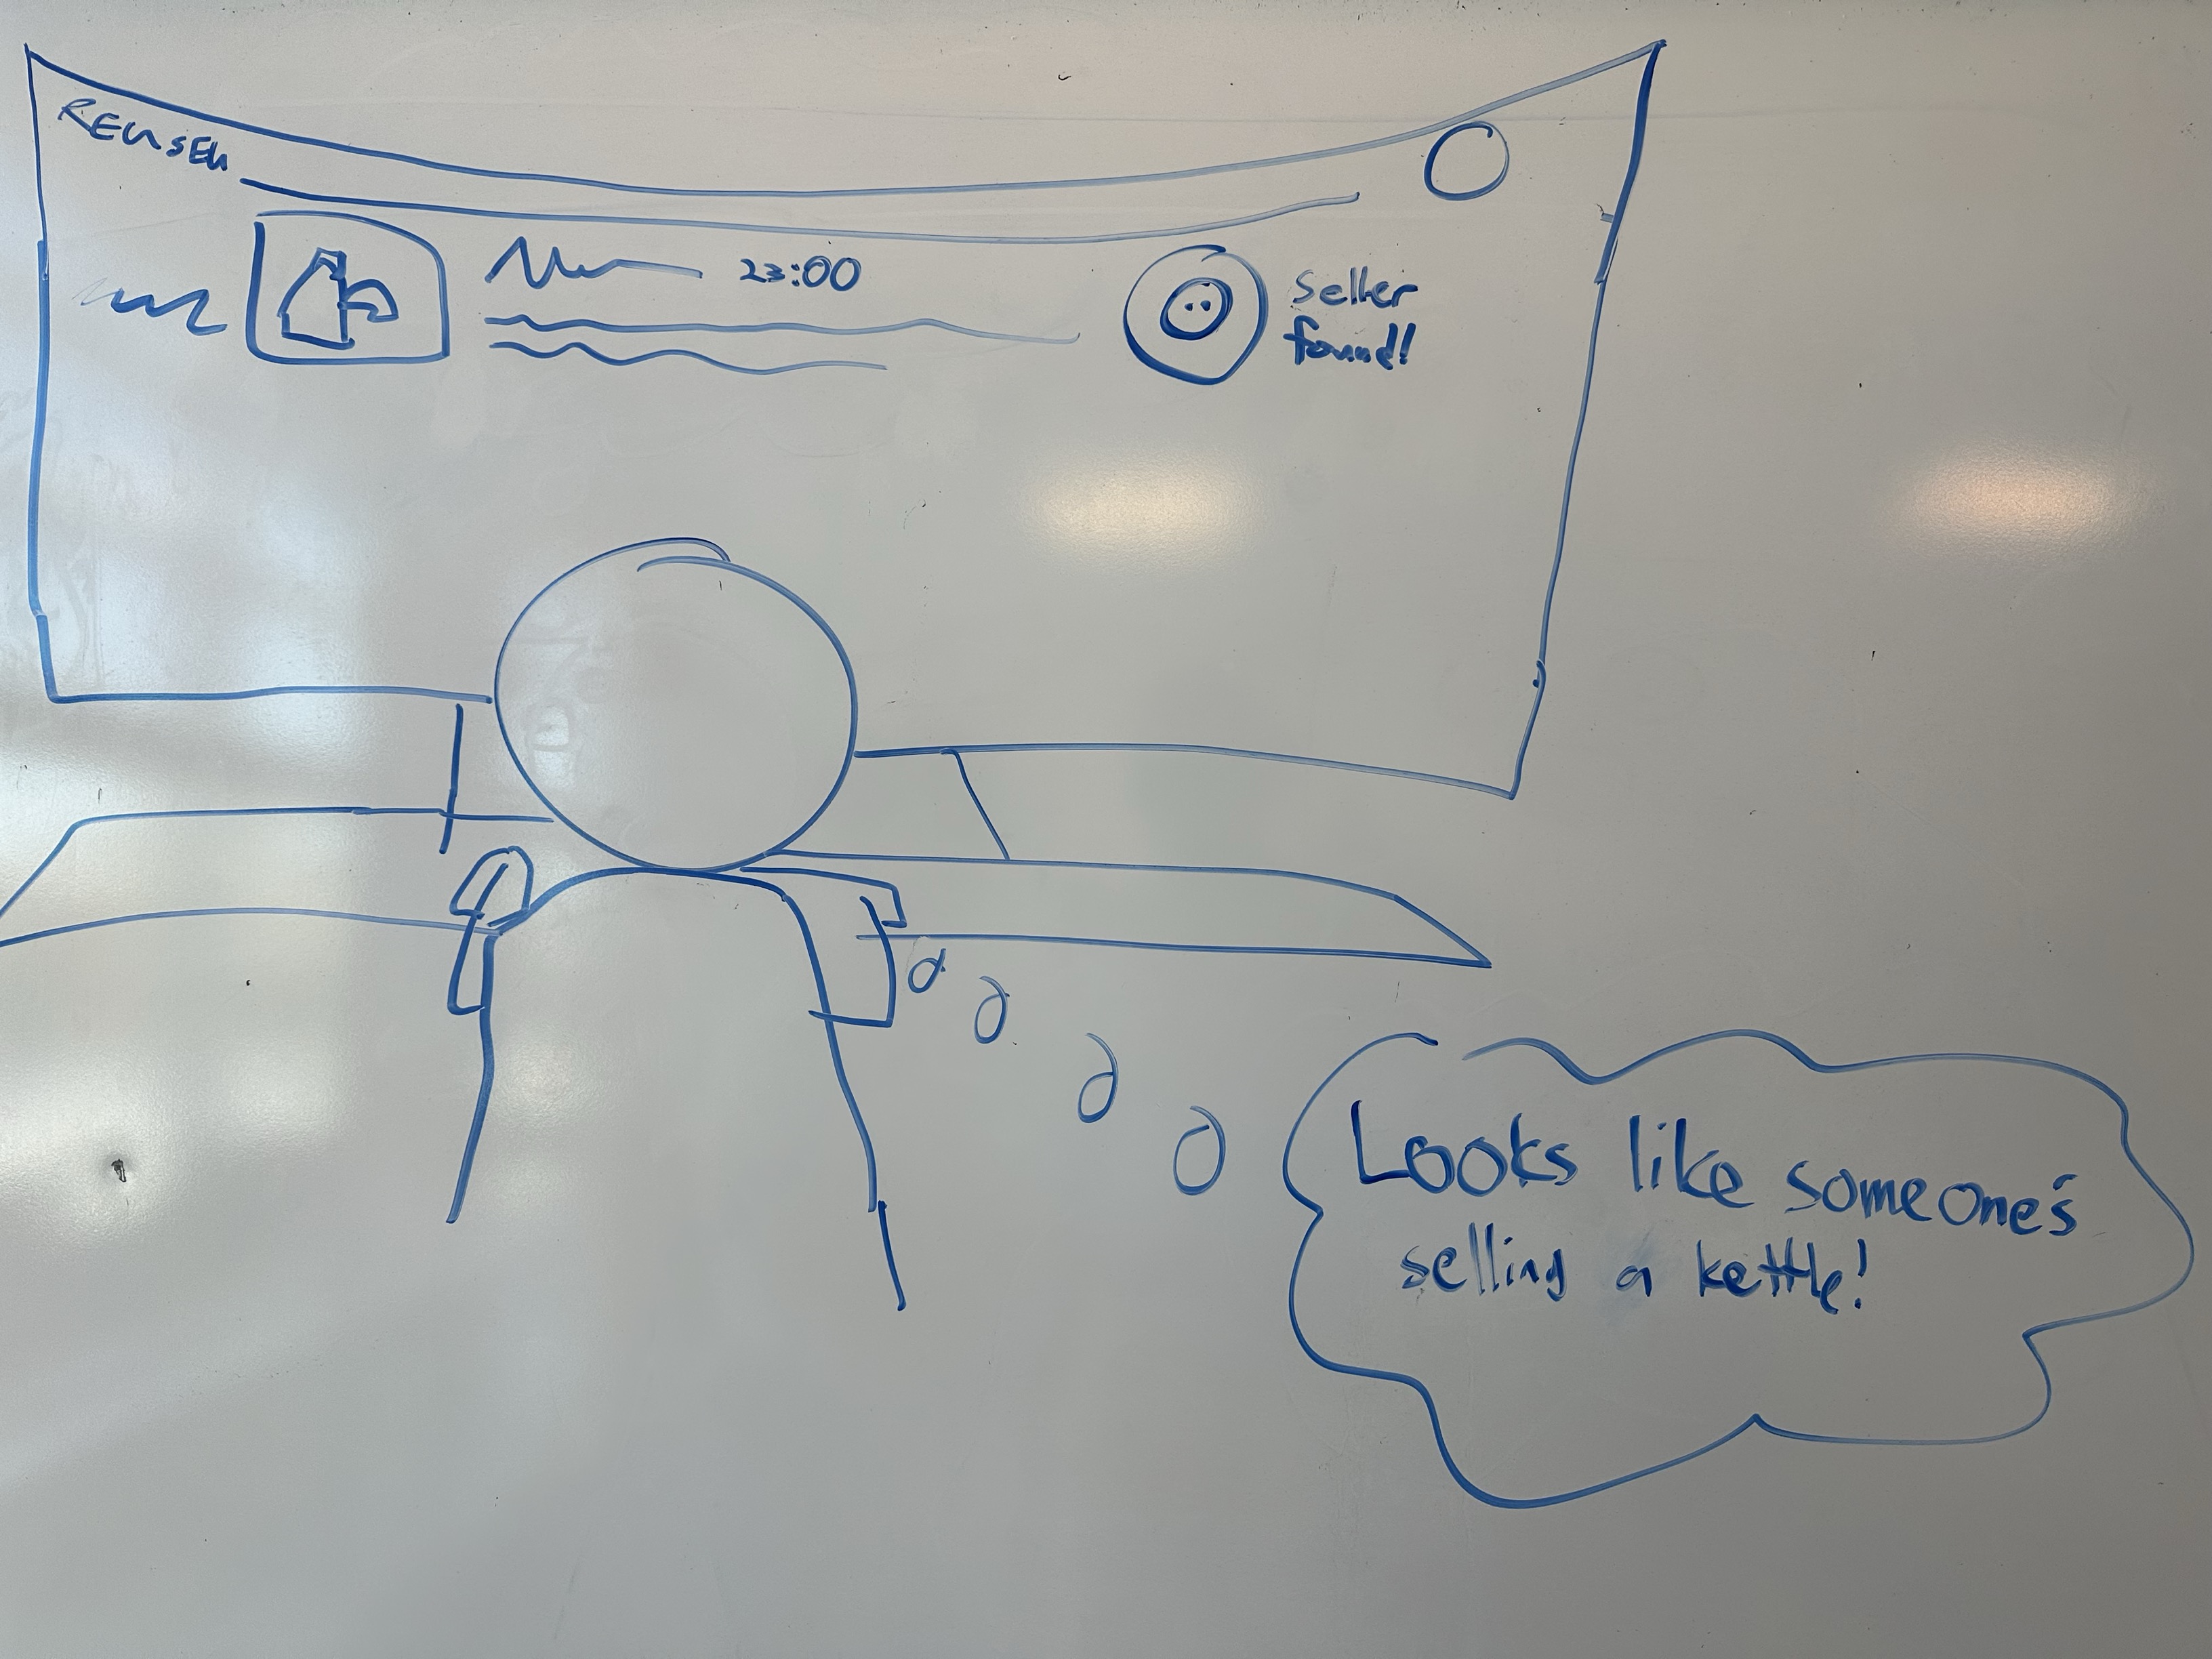 23:00
Seller
found!
Looks like someone's
selling a kettle!